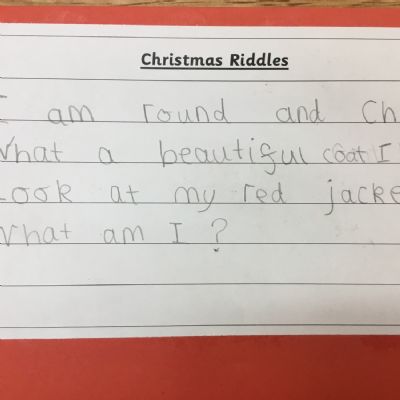 Christmas Riddles
I am round and Ch
What a beautiful coat I
Look at my red jacke
What am I ?